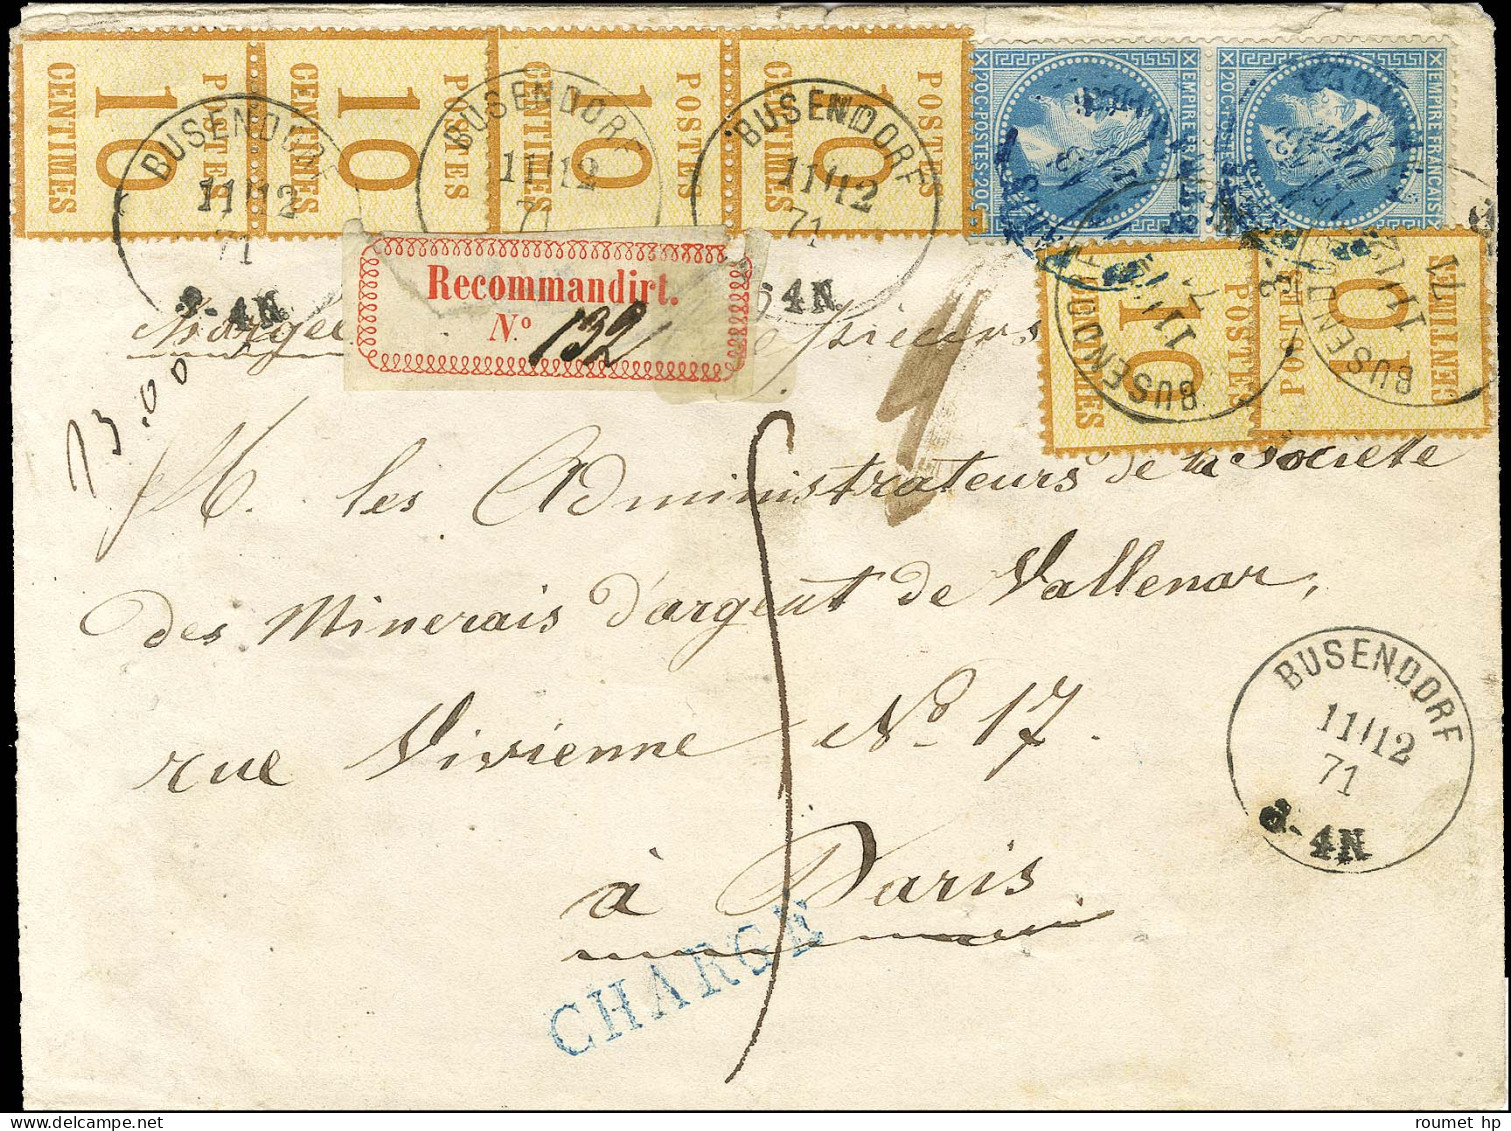 POSTES
10
CENTIMES
POSTES
10
CENTIMES
POSTES
10
CENTIMES
POSTES
10
CENTIMES
EMPIRE FRANÇAIS
20C POSTES 20C
EMPIRE FRANÇAIS
20C POSTES 20C
BUSENDORF
11/12
71
3-4N
BUSENDORF
11/12
71
BUSENDORF
11/12
71
4N
POSTES
10
CENTIMES
POSTES
10
CENTIMES
BUSENDORF
11/12
BUSENDORF
11/12
71
Recommandirt.
No. 132
Chargée
13.00
M. les Administrateurs de la Société
des Minerais d'argent de Vallenar,
rue Vivienne No 17.
à Paris
CHARGÉ
BUSENDORF
11/12
71
3-4N
roumet hp